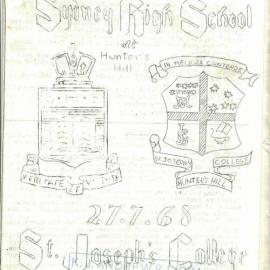 Sydney High School
at
Hunter's
Hill
IN MELIORA CONTENDE
VERITATE ET VIRTUTE
ST JOSEPH'S COLLEGE
HUNTER'S HILL
27.7.68
St. Joseph's College